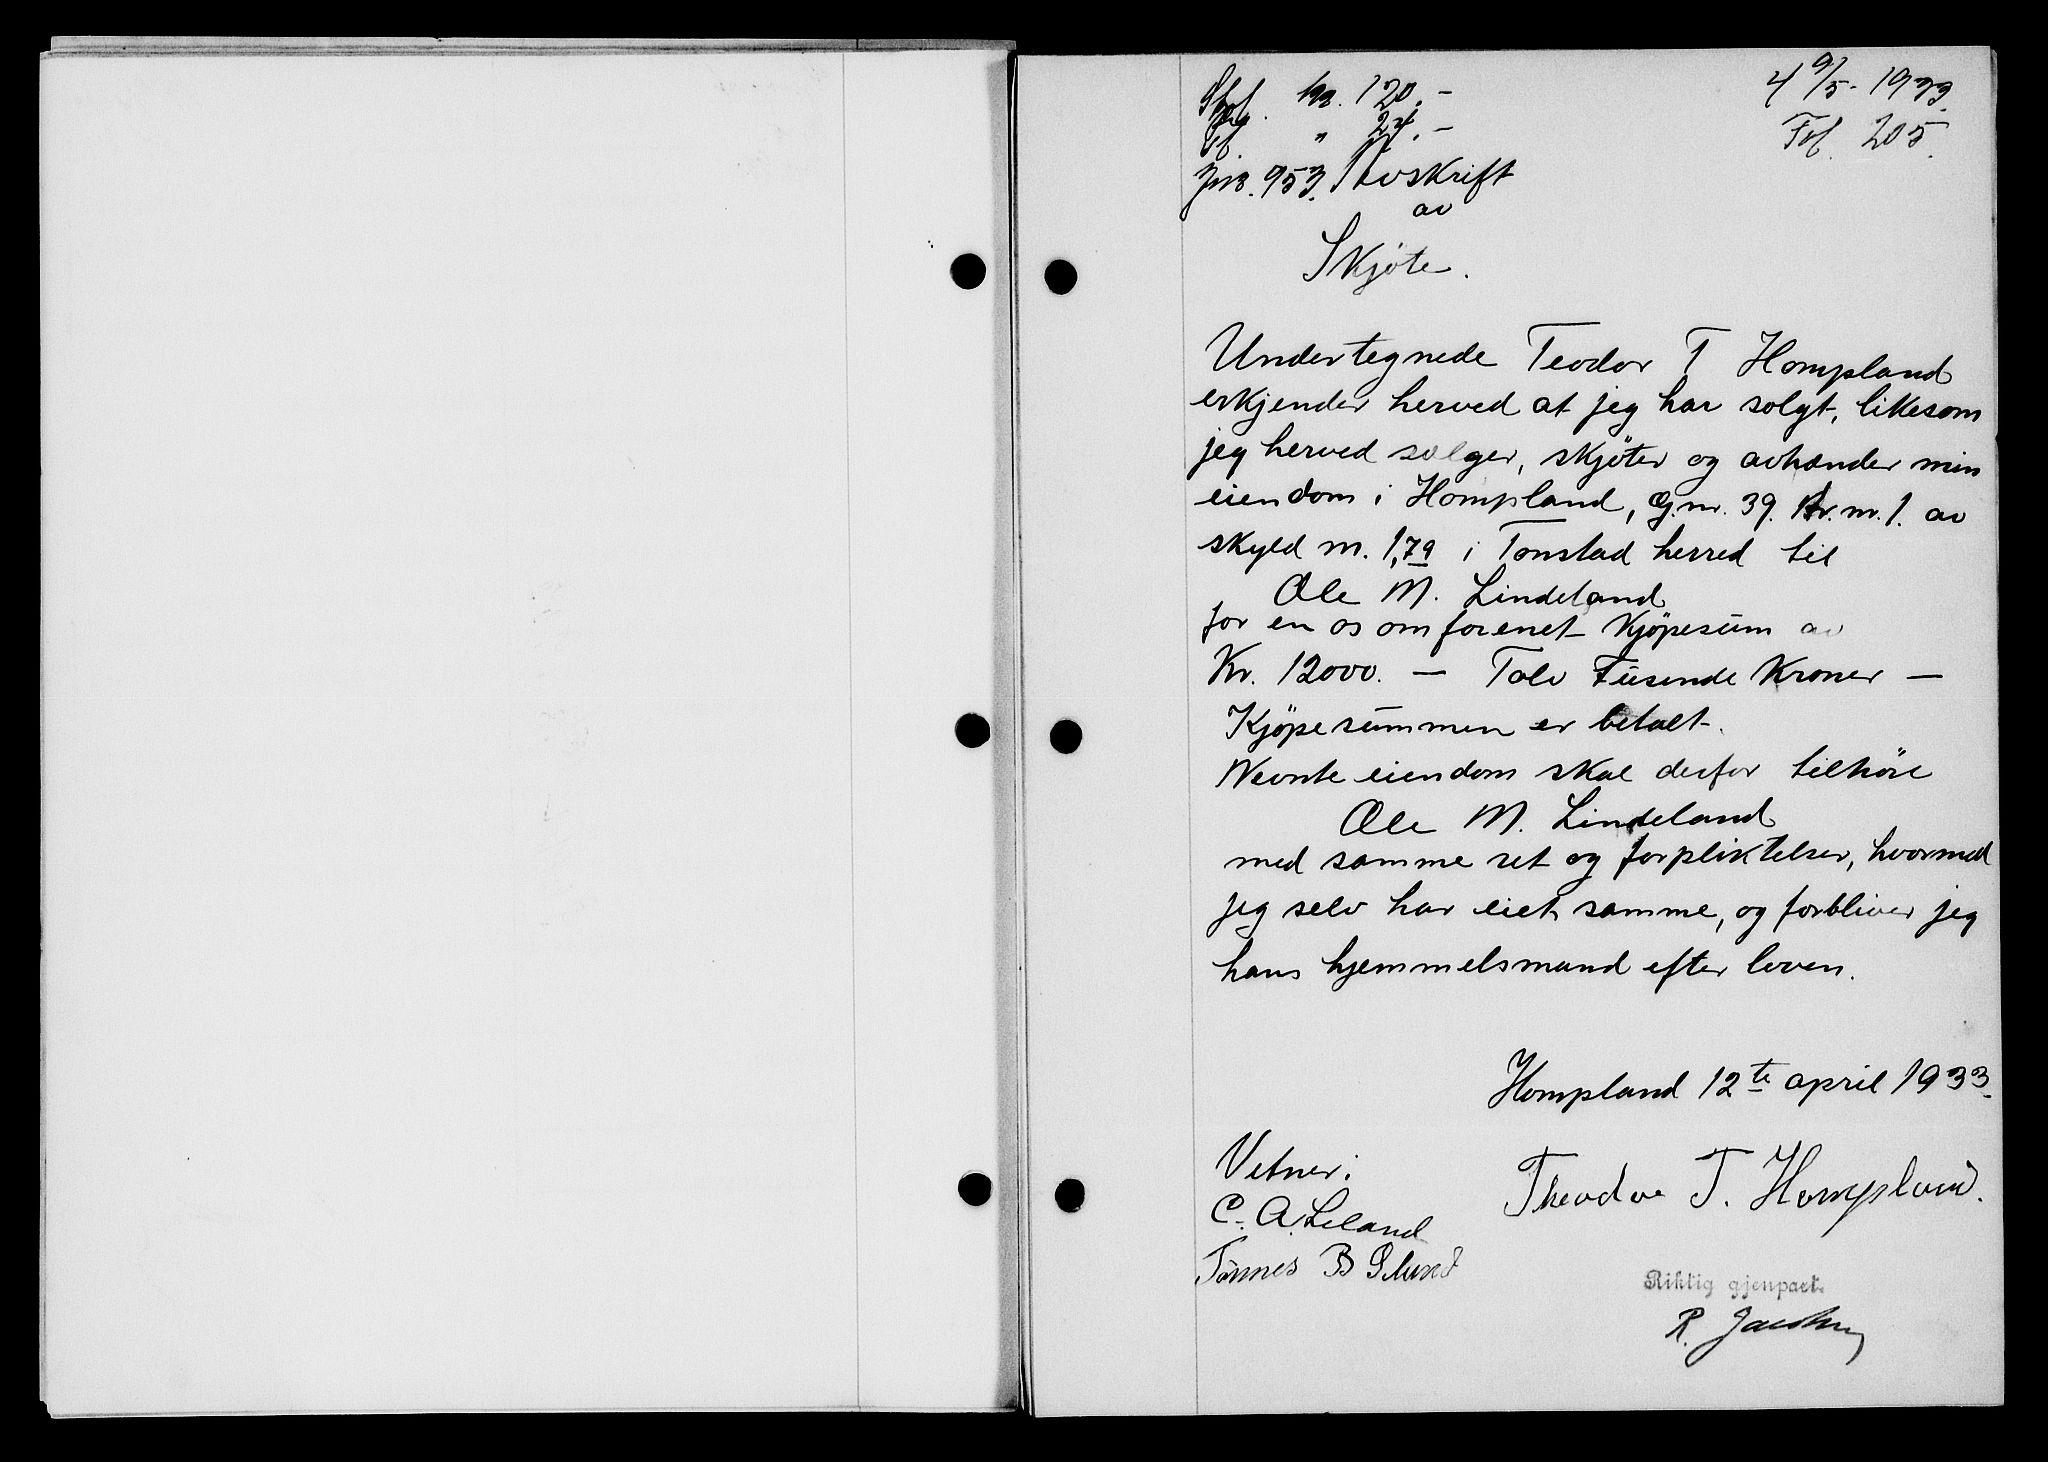 kr. 120.-
" 24.-
4 9/5-1933.
Fol. 205.
Jnr. 953. Avskrift
av
Skjøte.
Undertegnede Teodor T Hompland
erkjender herved at jeg har solgt, likesom
jeg herved selger, skjøter og avhænder min
eiendom i Hompland, G.nr. 39. Br.nr. 1. av
skyld m. 1,79 i Tonstad herred til
Ole M. Lindeland
for en os omforenet kjøpesum av
Kr. 12000. — Tolv Tusende Kroner —
Kjøpesummen er betalt.
Nevnte eiendom skal derfor tilhøre
Ole M. Lindeland
med samme ret og forpliktelser, hvormed
jeg selv har eiet samme, og forbliver jeg
hans hjemmelsmand efter loven.
Hompland 12te april 1933.
Vetner:
Theodor T. Hompland.
C. A. Leland
Tønnes B
Riktig gjenpart.
R.